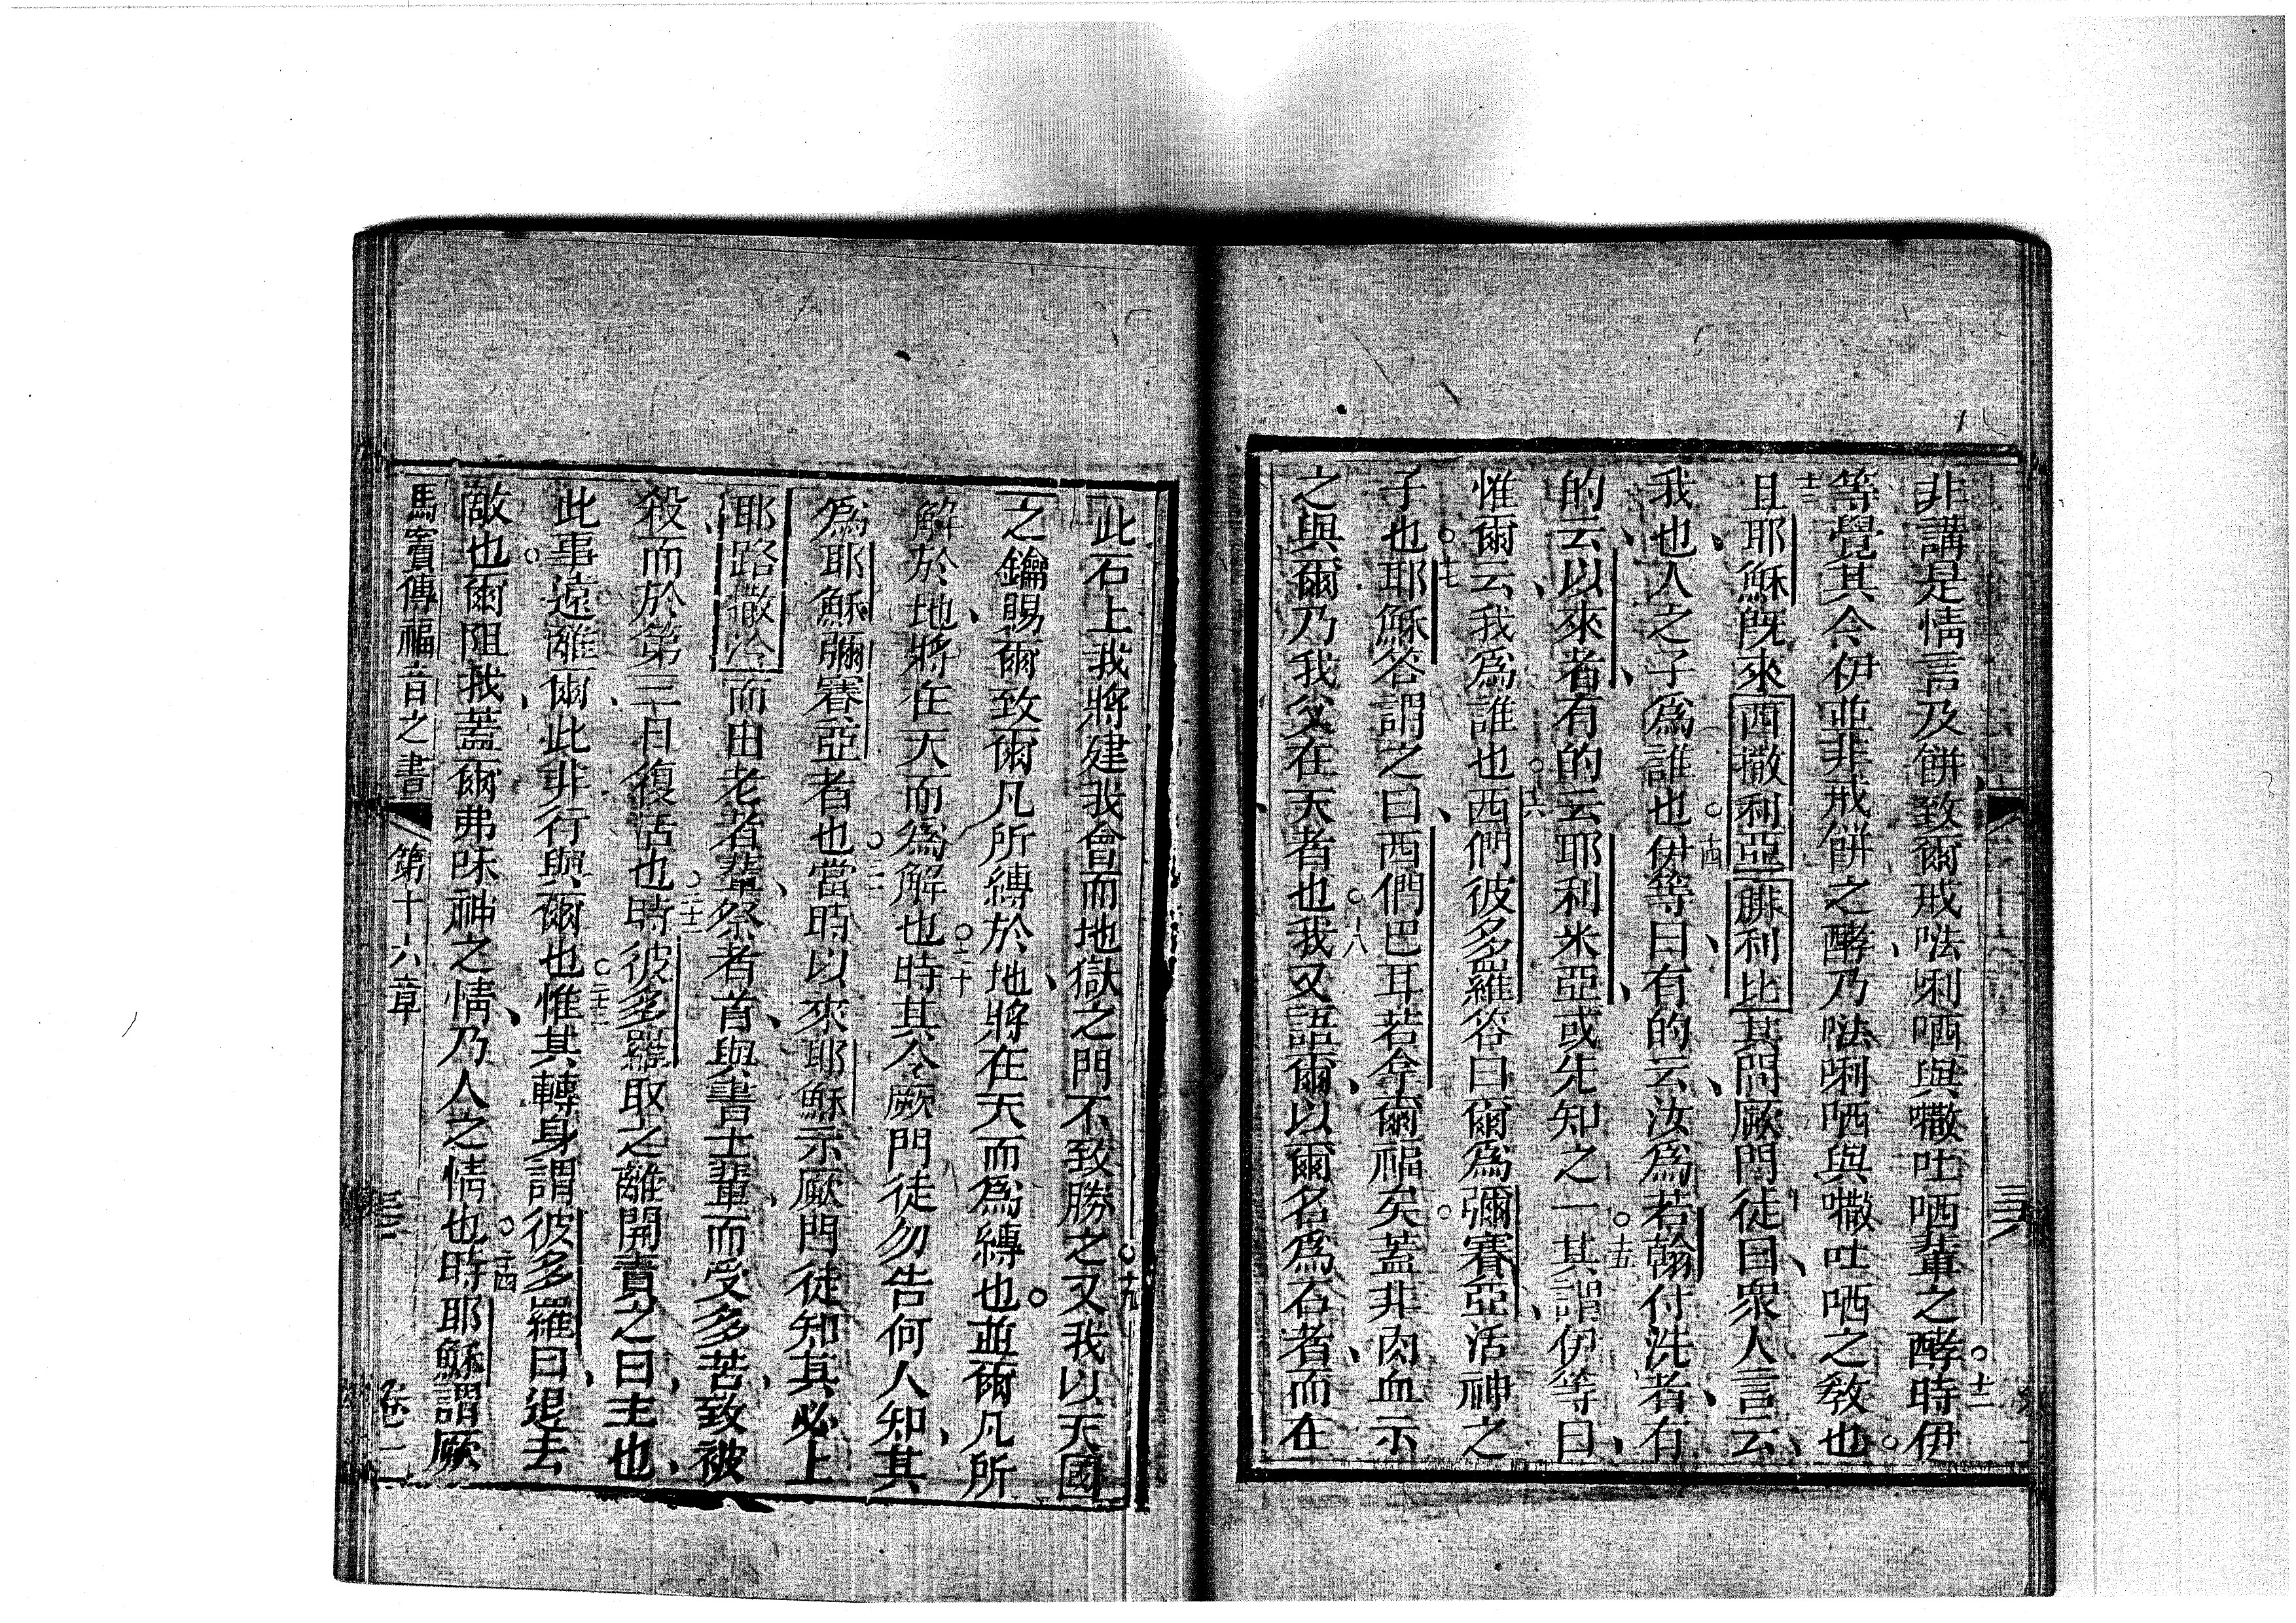 非講是情言及餅致爾戒𠵽唎哂與㘔吐哂輩之酵時伊
等覺其令伊並非戒餅之酵乃𠵽唎哂與㘔吐哂之教也
且耶穌既來西撒利亞腓利比其問厥門徒曰眾人言云
我也人之子為誰也伊等曰有的云汝為若翰付洗者有
的云以來者有的云耶利米亞或先知之一其謂伊等曰
惟爾云我為誰也西們彼多羅答曰爾為彌賽亞活神之
子也耶穌答謂之曰西們巴耳若拿爾福矣蓋非肉血示
之與爾乃我父在天者也我又語爾以爾名為石者而在
此石上我將建我會而地獄之門不致勝之又我以天國
之鑰賜爾致爾凡所縛於地將在天而為縛也並爾凡所
解於地將在天而為解也時其令厥門徒勿告何人知其
為耶穌彌賽亞者也當時以來耶穌示厥門徒知其必上
耶路撒冷而由老者輩祭者首與書士輩而受多苦致被
殺而於第三日復活也時彼多羅取之離開責之曰主也
此事遠離爾此非行與爾也惟其轉身謂彼多羅曰退去
敵也爾阻我蓋爾弗味神之情乃人之情也時耶穌謂厥
馬竇傳福音之書 第十六章 卷一